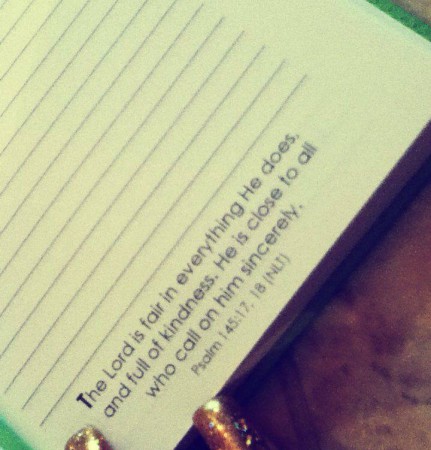 The Lord is fair in everything He does,
and full of kindness. He is close to all
who call on him sincerely.
Psalm 145:17, 18 (NLI)